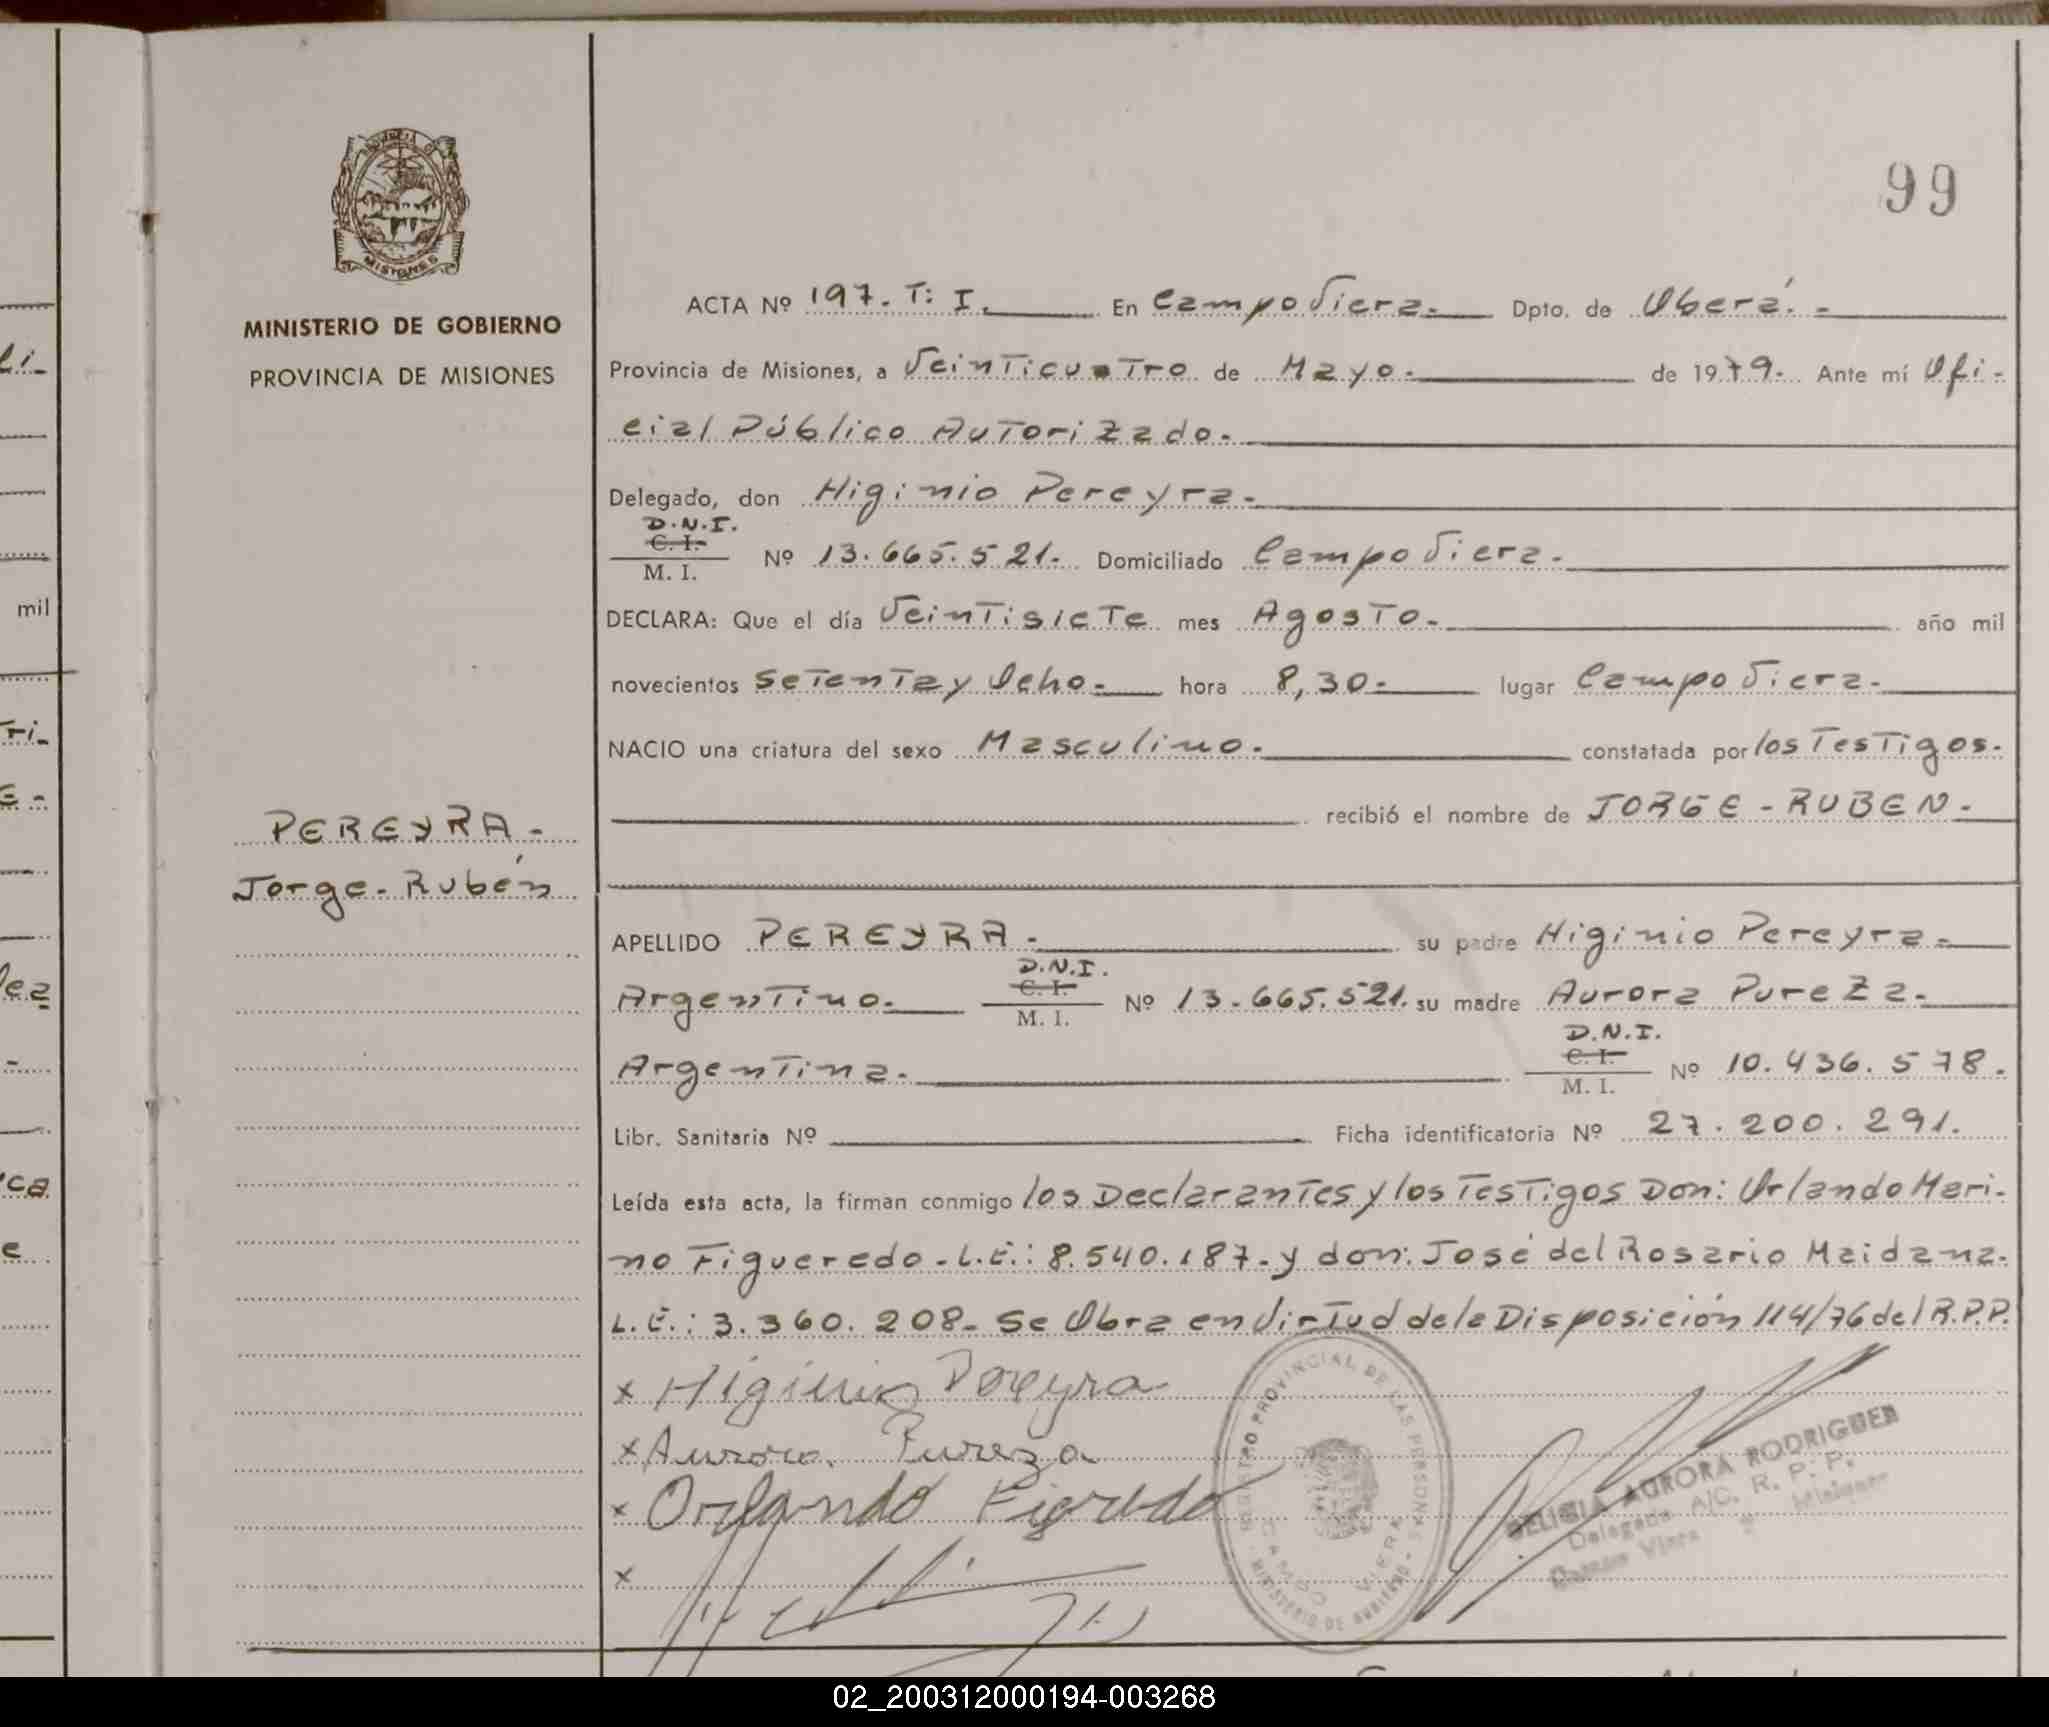 99
MINISTERIO DE GOBIERNO
PROVINCIA DE MISIONES
PROVINCIA D
MISIONES
ACTA Nº 197. T: I. En Campo Viera. Dpto. de Oberá. -
Provincia de Misiones, a Veinticuatro de Mayo. de 1979. Ante mí Ofi-
cial Público Autorizado.
Delegado, don Higinio Pereyra.
D.N.I.
C. I. Nº 13.665.521. Domiciliado Campo Viera.
M. I.
DECLARA: Que el día Veintisiete mes Agosto. año mil
novecientos Setenta y Ocho. hora 8,30. lugar Campo Viera.
NACIO una criatura del sexo Masculino. constatada por los Testigos.
recibió el nombre de JORGE - RUBEN.
PEREYRA -
Jorge - Rubén
APELLIDO PEREYRA. su padre Higinio Pereyra.
D.N.I.
Argentino. C. I. Nº 13.665.521. su madre Aurora Pureza.
M. I.
D.N.I.
Argentina. C. I. Nº 10.436.578.
M. I.
Libr. Sanitaria Nº Ficha identificatoria Nº 27.200.291.
Leída esta acta, la firman conmigo los Declarantes y los Testigos Don: Orlando Mari-
no Figueredo. L.E.: 8.540.187. y don: José del Rosario Maidana.
L.E.: 3.360.208. Se Obra en Virtud de la Disposición 114/76 del R.P.P.
x Higinio Pereyra
x Aurora Pureza
x Orlando Figredo
x
REGISTRO PROVINCIAL DE LAS PERSONAS
CAMPO VIERA
MINISTERIO DE GOBIERNO
AURORA RODRIGUEZ
Delegada A/C. R. P. P.
Viera Misiones
mil
02_200312000194-003268